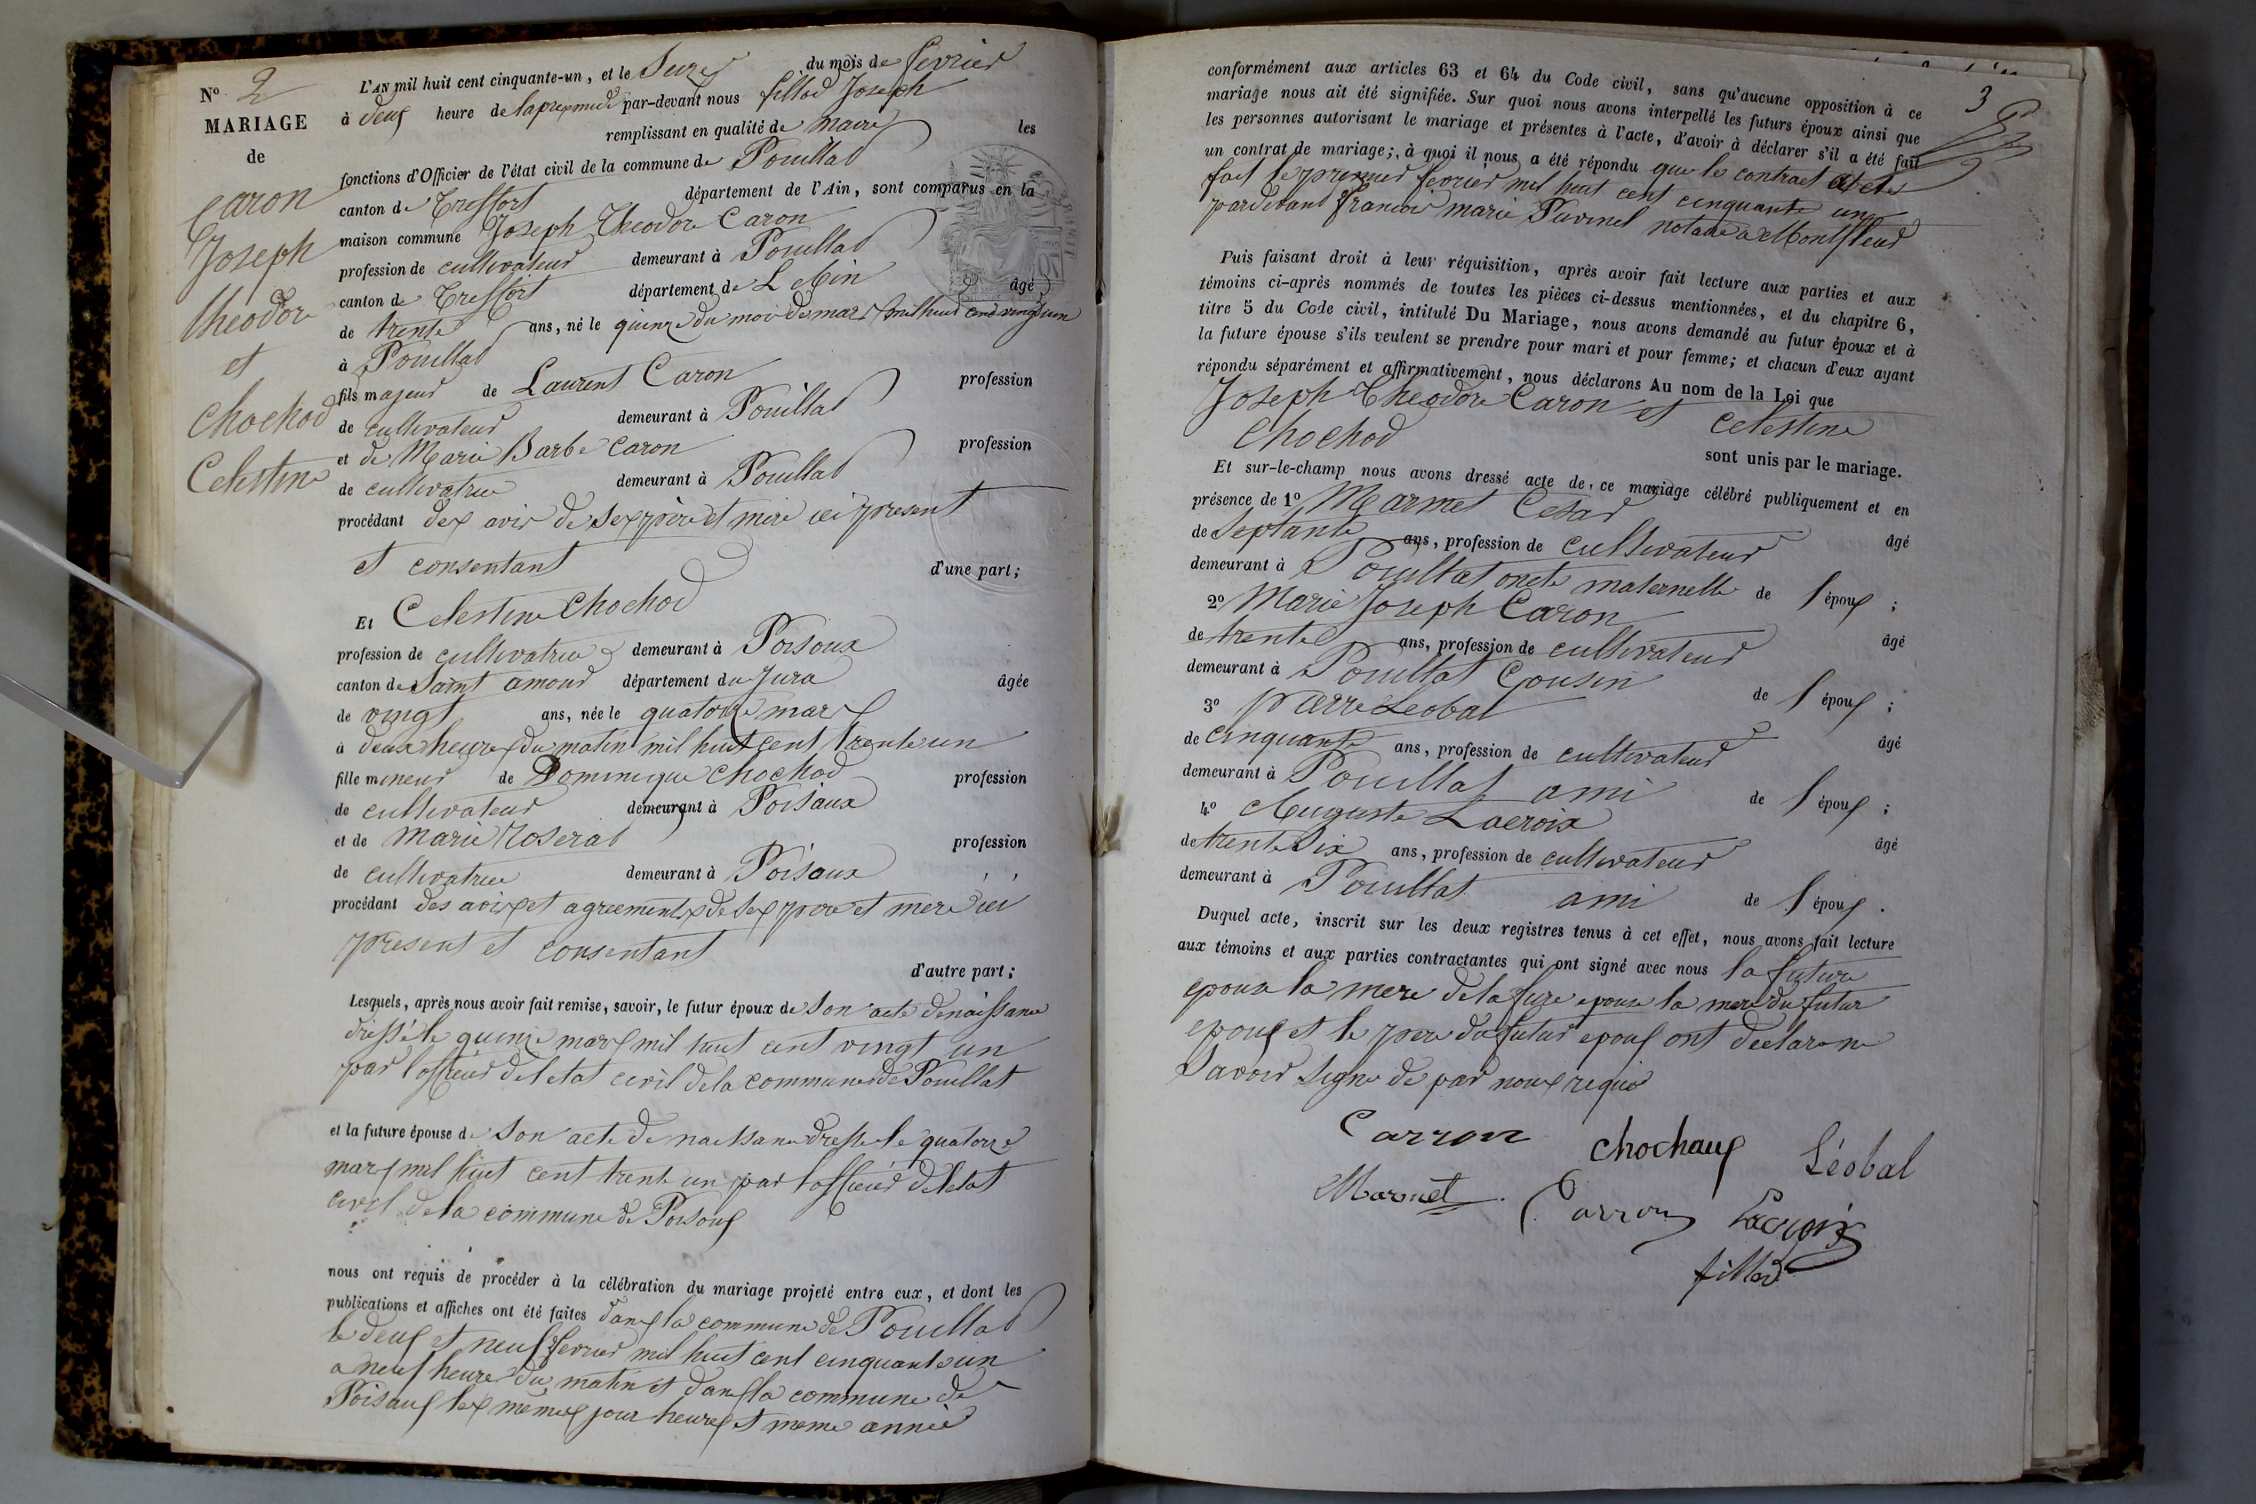 N° 2
MARIAGE
de
Caron
Joseph
theodore
et
Chochod
Celestine
L'AN mil huit cent cinquante-un, et le Seize du mois de fevrier
à deux heure de lapresmidi par-devant nous fillod Joseph
remplissant en qualité de maire les
fonctions d'Officier de l'état civil de la commune de Pouillat
canton de Treffort département de l'Ain, sont comparus en la
maison commune Joseph Theodore Caron
profession de cultivateur demeurant à Pouillat
canton de Treffort département de L Ain âgé
de trente ans, né le quinze du moi de mars mil huit cend vingt un
à Pouillat
fils majeur de Laurent Caron profession
de cultivateur demeurant à Pouillat
et de Marie Barbe Caron profession
de cultivatrice demeurant à Pouillat
procédant des avis de ses pere et mere ici present
et consentant d'une part;
Et Celestine Chochod
profession de cultivatrice demeurant à Poisoux
canton de Saint amour département du Jura âgée
de vingt ans, née le quatorze mars
à deux heures du matin mil huit cent trente un
fille mineur de Dominique Chochod profession
de cultivateur demeurant à Poisoux
et de Marie Roserat profession
de cultivatrice demeurant à Poisoux
procédant des avis et agreements de ses pere et mere ici
present et consentant
d'autre part;
Lesquels, après nous avoir fait remise, savoir, le futur époux de Son acte de naissance
dressé le quinze mars mil huit cent vingt un
par l'officier de l etat civil de la commune de Pouillat
et la future épouse de Son acte de naissance dressé le quatorze
mars mil huit cent trente un par l officier de l etat
civil de la commune de Poisoux
nous ont requis de procéder à la célébration du mariage projeté entre eux, et dont les
publications et affiches ont été faites dans la commune de Pouillat
le deux et neuf fevrier mil huit cent cinquante un
a neuf heures du matin et dans la commune de
Poisoux les memes jour heures et meme année
3
conformément aux articles 63 et 64 du Code civil, sans qu'aucune opposition à ce
mariage nous ait été signifiée. Sur quoi nous avons interpellé les futurs époux ainsi que
les personnes autorisant le mariage et présentes à l'acte, d'avoir à déclarer s'il a été fait
un contrat de mariage; à quoi il nous a été répondu que le contract a ete
fait le premier fevrier mil huit cent cinquante un
pardevant francois marie Puvinel notaire a Montfleur
Puis faisant droit à leur réquisition, après avoir fait lecture aux parties et aux
témoins ci-après nommés de toutes les pièces ci-dessus mentionnées, et du chapitre 6,
titre 5 du Code civil, intitulé Du Mariage, nous avons demandé au futur époux et à
la future épouse s'ils veulent se prendre pour mari et pour femme; et chacun d'eux ayant
répondu séparément et affirmativement, nous déclarons Au nom de la Loi que
Joseph Theodore Caron et Celestine
Chochod sont unis par le mariage.
Et sur-le-champ nous avons dressé acte de ce mariage célébré publiquement et en
présence de 1° Marmet Cesar âgé
de Septante ans, profession de cultivateur
demeurant à Pouillat oncle maternelle de l époux ;
2° Marie Joseph Caron âgé
de trente ans, profession de cultivateur
demeurant à Pouillat Cousin de l époux ;
3° pierre Leobal âgé
de cinquante ans, profession de cultivateur
demeurant à Pouillat ami de l époux ;
4° Auguste Lacroix âgé
de trente Six ans, profession de cultivateur
demeurant à Pouillat ami de l époux .
Duquel acte, inscrit sur les deux registres tenus à cet effet, nous avons fait lecture
aux témoins et aux parties contractantes qui ont signé avec nous la future
epouse la mere de la fure epouse la mere du futur
epoux et le pere du futur epoux ont declare ne
Savoir Signe de par nous requis
Carron Chochaux Léobal
Marmet Carron Lacroix
fillod